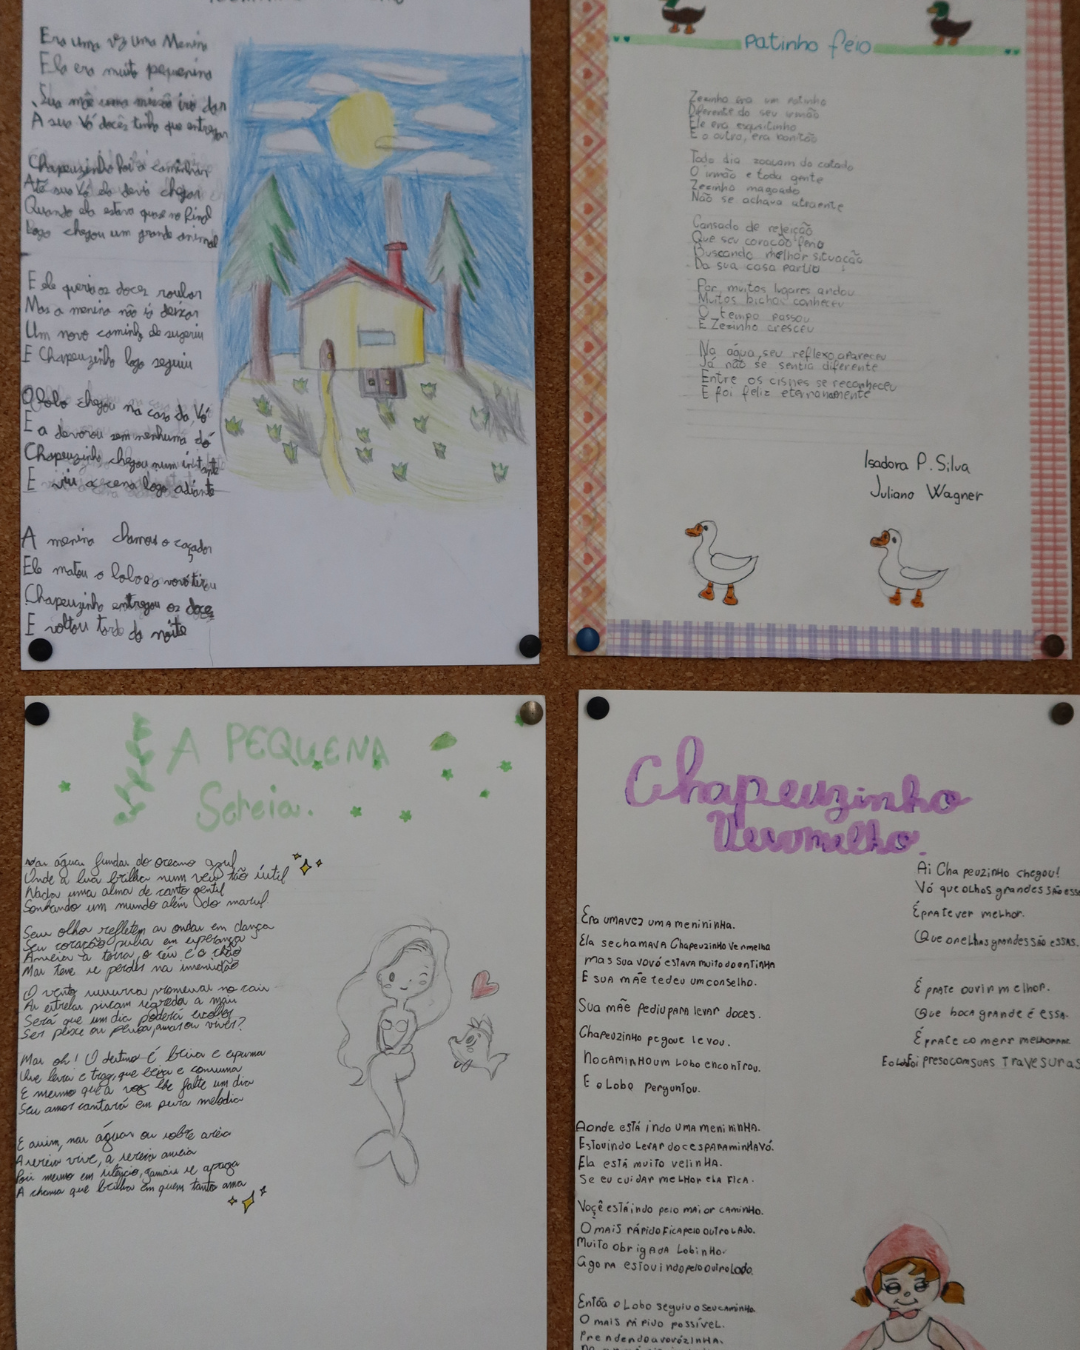 Era uma vez uma Menina
Ela era muito pequenina
Sua mãe uma missão irá dar
A sua Vó doces tinha que entregar
Chapeuzinho foi a caminhar
Até sua Vó ela devia chegar
Quando ela estava quase no final
Logo chegou um grande animal
E ele queria os doces roubar
Mas a menina não ia deixar
Um novo caminho ele sugeriu
E Chapeuzinho logo seguiu
O lobo chegou na casa da Vó
E a devorou sem nenhuma dó
Chapeuzinho chegou num instante
E viu a cena logo adiante
A menina chamou o caçador
Ele matou o lobo e a vovó tirou
Chapeuzinho entregou os doces
E voltou tarde da noite
Patinho feio
Zezinho era um patinho
Diferente do seu irmão
Ele era esquisitinho
E o outro, era bonitão
Todo dia zoavam do coitado
O irmão e toda gente
Zezinho magoado
Não se achava atraente
Cansado de rejeição
Que seu coração feria
Buscando melhor situação
Da sua casa partiu
Por muitos lugares andou
Muitos bichos conheceu
O tempo passou
E Zezinho cresceu
Na água, seu reflexo apareceu
Já não se sentia diferente
Entre os cisnes se reconheceu
E foi feliz eternamente
Isadora P. Silva
Juliano Wagner
A PEQUENA
Sereia.
Nas águas fundas do oceano azul
Onde a lua brilha num véu tão sútil
Nada uma alma de canto gentil
Sonhando um mundo além do
Seus olhos refletem as ondas em dança
Seu coração pulsa em esperança
Anseia a terra, o céu e o chão
Mas teme se perder na imensidão
O vento sussurra promessas no cais
As estrelas piscam segredos a mais
Será que um dia poderá escolher
Ser peixe ou pessoa, amar ou viver?
Mas oh! O destino é brisa e espuma
Que leva e traz, que beija e consuma
E mesmo que a voz lhe falte um dia
Seu amor cantará em pura melodia
E assim, nas águas ou sobre areia
A sereia vive, a sereia anseia
Pois mesmo em silêncio, jamais se apaga
A chama que brilha em quem tanto ama
Chapeuzinho
Vermelho.
Era uma vez uma menininha.
Ela se chamava Chapeuzinho Vermelho
mas sua vovó estava muito doentinha
E sua mãe te deu um conselho.
Sua mãe pediu para levar doces.
Chapeuzinho pegou e levou.
No caminho um lobo encontrou.
E o Lobo perguntou.
Aonde está indo uma menininha.
Estou indo levar doces para minha vó.
Ela está muito velinha.
Se eu cuidar melhor ela fica.
Você está indo pelo maior caminho.
O mais rápido fica pelo outro lado.
Muito obrigada Lobinho.
Agora estou indo pelo outro lado.
Então o Lobo seguiu o seu caminho.
O mais rápido possível.
Prendendo a vovózinha.
Ai Chapeuzinho chegou!
Vó que olhos grandes são esse
É pra te ver melhor.
Que orelhas grandes são essas.
É pra te ouvir melhor.
Que boca grande é essa.
É pra te comer melhor
E o Lobo foi preso com suas travesuras